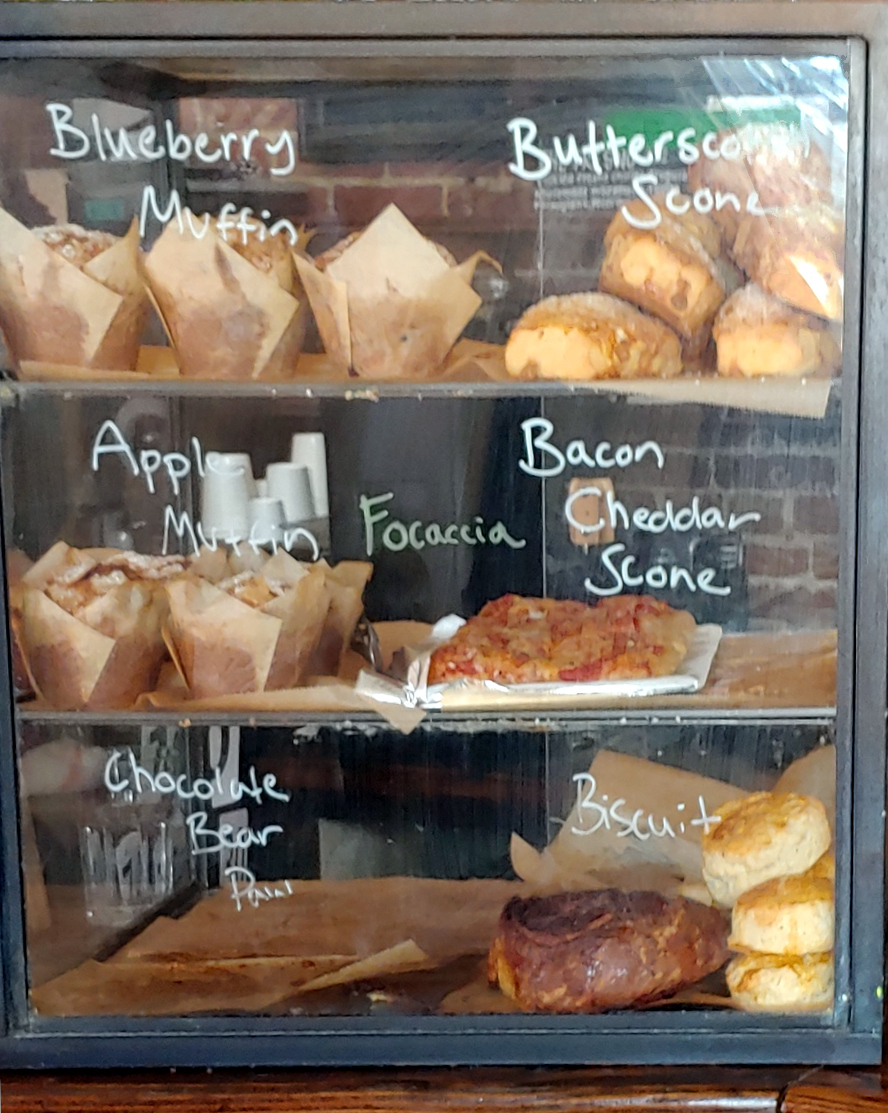 Blueberry
Muffin
Butterscotch
Scone
Apple
Muffin
Focaccia
Bacon
Cheddar
Scone
Chocolate
Bear
Paw
Biscuit